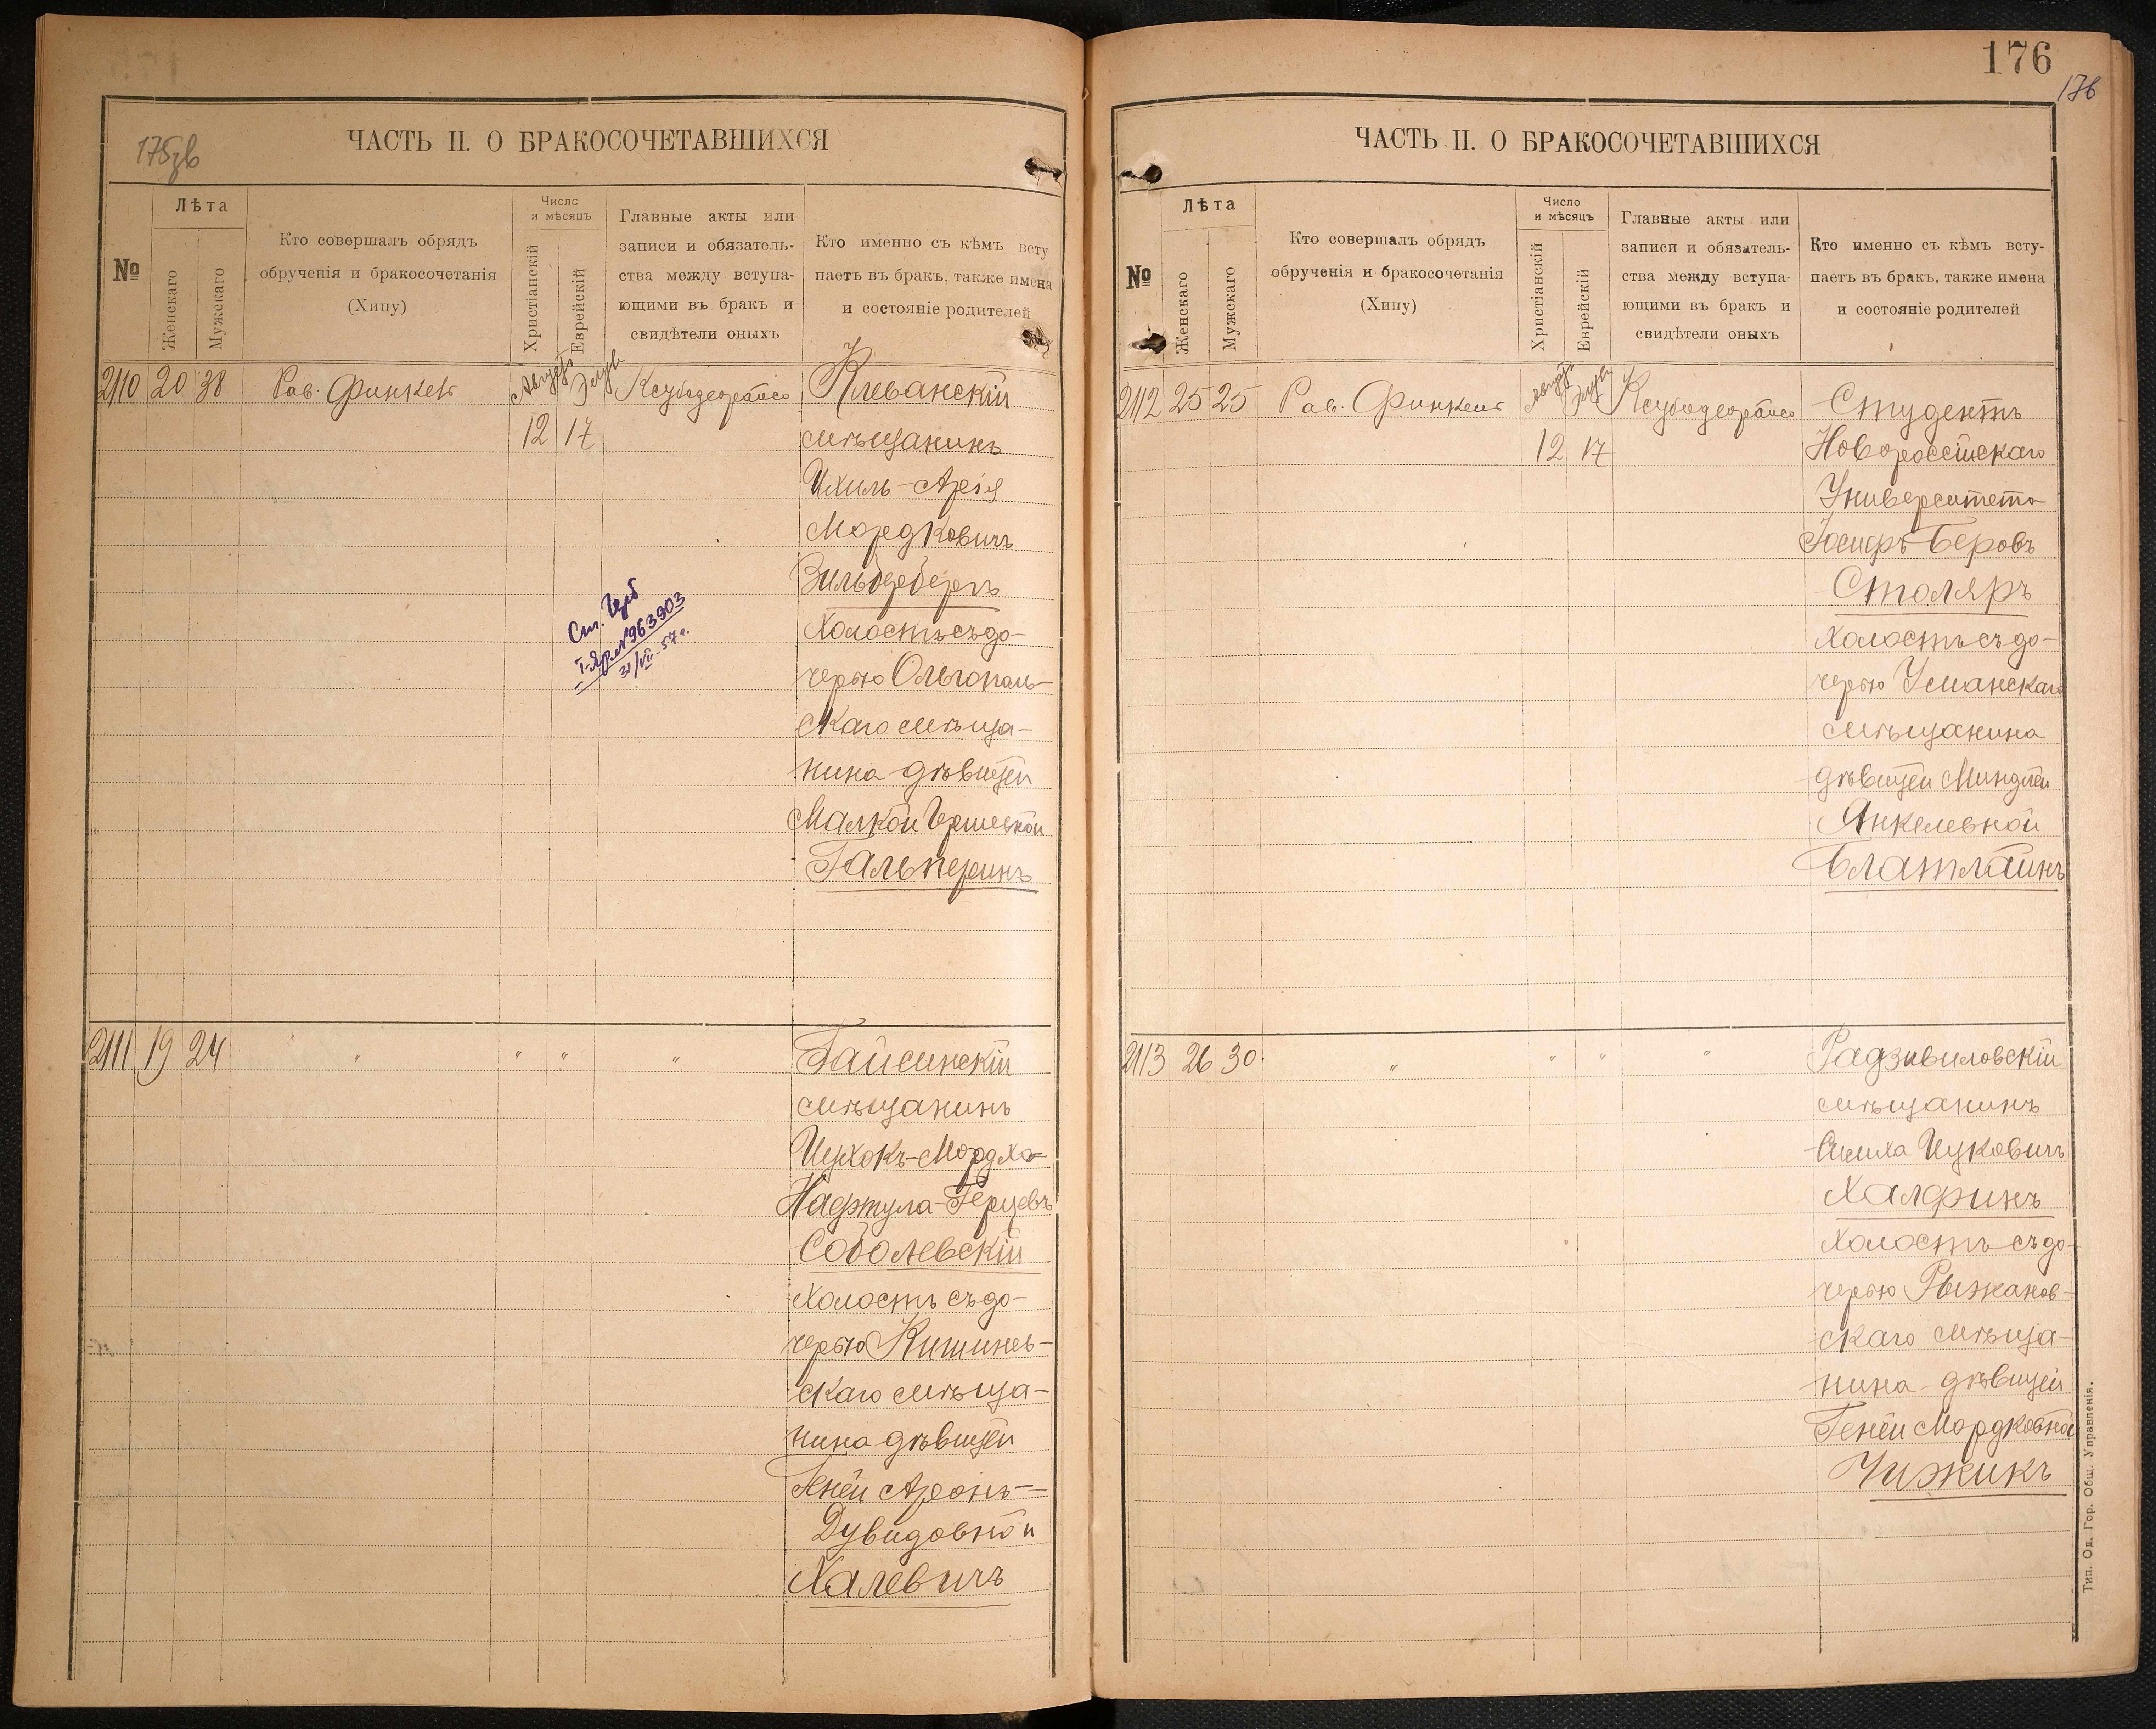 175зв
ЧАСТЬ II. О БРАКОСОЧЕТАВШИХСЯ
№
Лѣта
Женскаго
Мужскаго
Кто совершалъ обрядъ
обрученія и бракосочетанія
(Хипу)
Число
и мѣсяцъ
Христіанскій
Еврейскій
Главные акты или
записи и обязатель-
ства между вступа-
ющими въ бракъ и
свидѣтели оныхъ
Кто именно съ кѣмъ всту
паетъ въ бракъ, также имена
и состояніе родителей
2110 20 38 Рав. Финкель Августъ Элулъ
12 17
Клеванскій
мѣщанинъ
Ихиль-Арія
Мордковичъ
Зильбербергъ
холостъ съ до-
черью Ольгополь-
скаго мѣща-
нина дѣвицей
Малкой Гершковой
Гальперинъ
№963903
31/VII-57г.
2111 19 24 " " " "
Гайсинскій
мѣщанинъ
Ицхокъ-Мордха-
Нафтула-Герцевъ
Соболевскій
холостъ съ до-
черью Кишинев-
скаго мѣща-
нина дѣвицей
Геней Аронъ-
Дувидовной
Халевичъ
176
176
ЧАСТЬ II. О БРАКОСОЧЕТАВШИХСЯ
№
Лѣта
Женскаго
Мужскаго
Кто совершалъ обрядъ
обрученія и бракосочетанія
(Хипу)
Число
и мѣсяцъ
Христіанскій
Еврейскій
Главные акты или
записи и обязатель-
ства между вступа-
ющими въ бракъ и
свидѣтели оныхъ
Кто именно съ кѣмъ всту-
паетъ въ бракъ, также имена
и состояніе родителей
2112 25 25 Рав. Финкель Августъ Элулъ
12 17
Студентъ
Новороссійскаго
Университета
Іосифъ Беровъ
Столяръ
холостъ съ до-
черью Уманскаго
мѣщанина
дѣвицей Миндлей
Янкелевной
Блатлайнъ
2113 26 30 " " " "
Радзивиловскій
мѣщанинъ
Симха Ицковичъ
Халфинъ
холостъ съ до-
черью Рыжанов-
скаго мѣща-
нина дѣвицей
Геней Мордковной
Чижикъ
Тип. Од. Гор. Общ. Управленія.